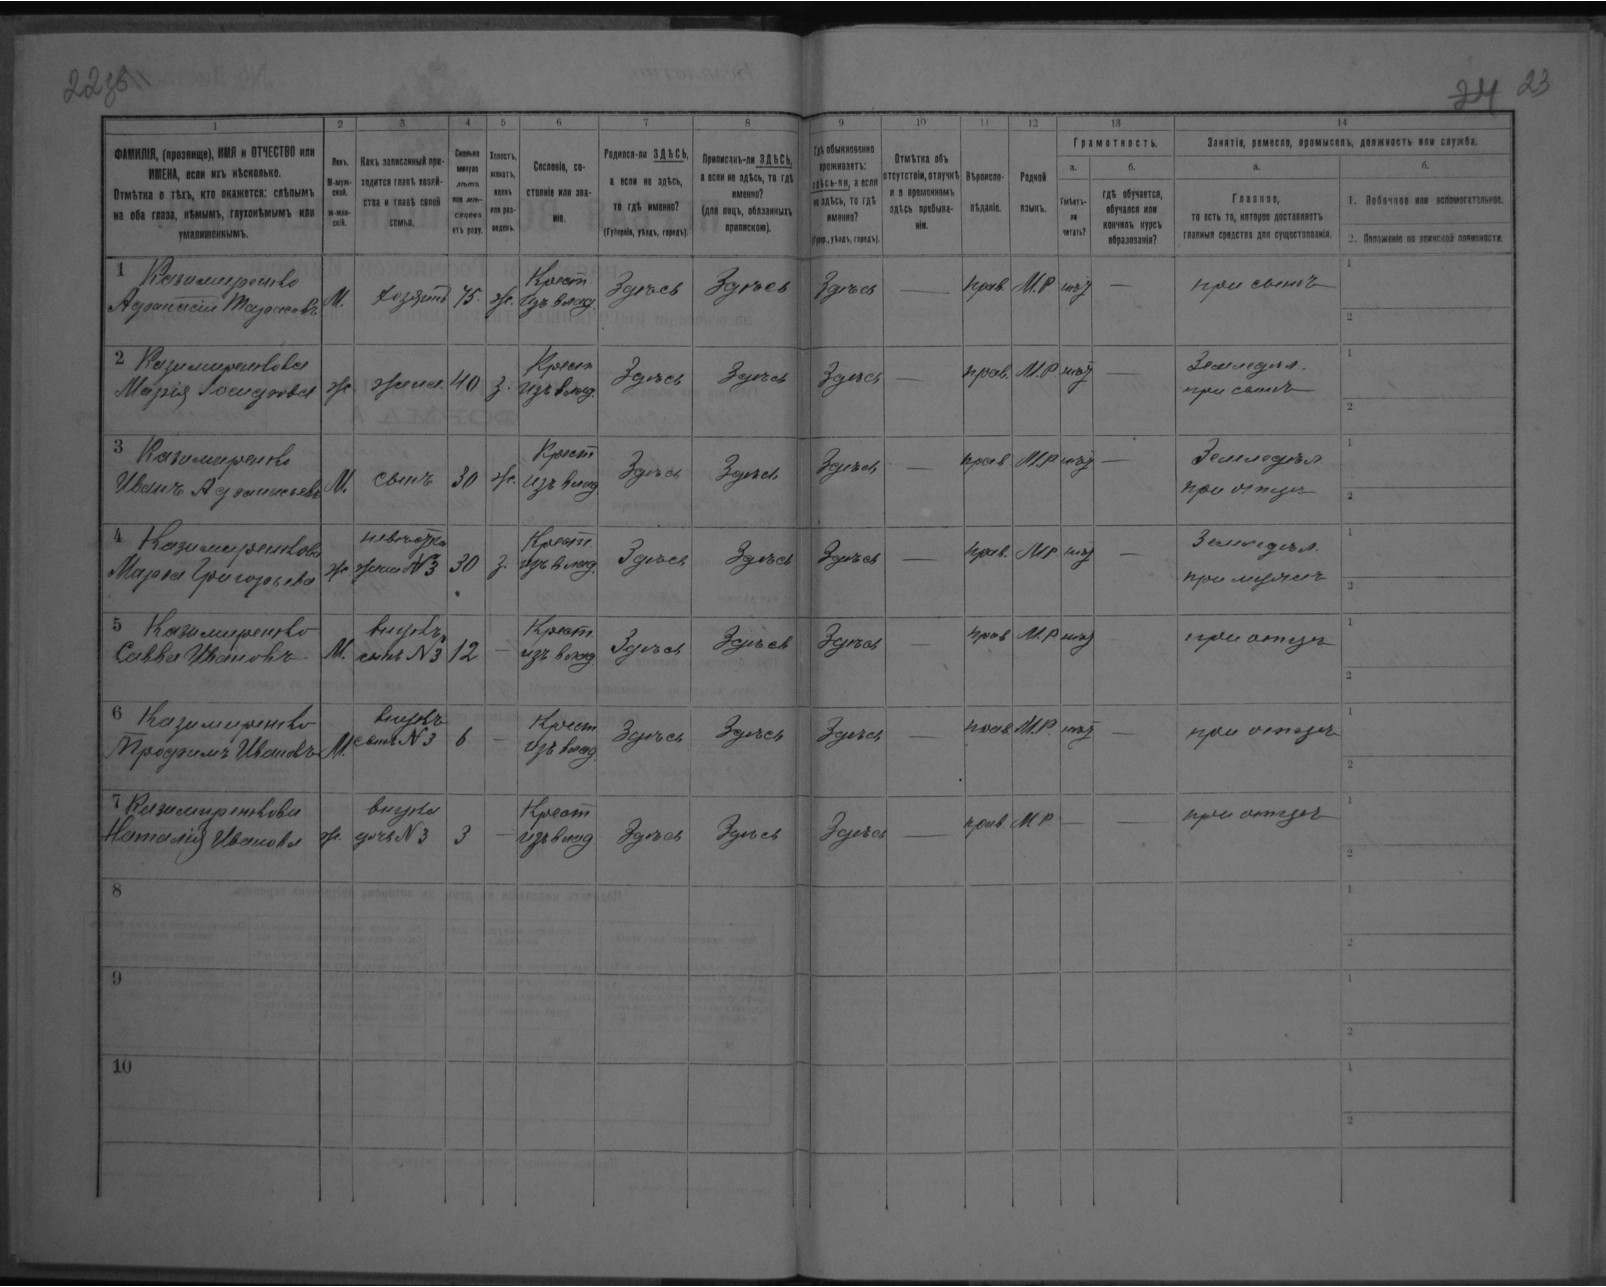 24 23
1 2 3 4 5 6 7 8 9 10 11 12 13 14
ФАМИЛІЯ, (прозвище), ИМЯ и ОТЧЕСТВО или
ИМЕНА, если ихъ нѣсколько.
Отмѣтка о тѣхъ, кто окажется: слѣпымъ
на оба глаза, нѣмымъ, глухонѣмымъ или
умалишеннымъ.
Полъ.
М-муж-
ской.
Ж-жен-
скій.
Какъ записанный при-
ходится главѣ хозяй-
ства и главѣ своей
семьи.
Сколько
минуло
лѣтъ
или мѣ-
сяцевъ
отъ роду.
Холостъ,
женатъ,
вдовъ
или раз-
веденъ.
Сословіе, со-
стояніе или зва-
ніе.
Родился-ли ЗДѢСЬ,
а если не здѣсь,
то гдѣ именно?
(Губернія, уѣздъ, городъ).
Приписанъ-ли ЗДѢСЬ,
а если не здѣсь, то гдѣ
именно?
(для лицъ, обязанныхъ
припискою).
Гдѣ обыкновенно
проживаетъ:
здѣсь-ли, а если
не здѣсь, то гдѣ
именно?
(Губер., уѣздъ, городъ).
Отмѣтка объ
отсутствіи, отлучкѣ
и о временномъ
здѣсь пребыва-
ніи.
Вѣроиспо-
вѣданіе.
Родной
языкъ.
Грамотность.
а.
Умѣетъ-
ли
читать?
б.
гдѣ обучается,
обучался или
кончилъ курсъ
образованія?
Занятіе, ремесло, промыселъ, должность или служба.
а.
Главное,
то есть то, которое доставляетъ
главныя средства для существованія.
б.
1. Побочное или вспомогательное.
2. Положеніе по воинской повинности.
1 Казимиренко
Афанасій Тарасовъ М. хозяинъ 75 ж. Крест. изъ влад. Здѣсь Здѣсь Здѣсь — прав. М.Р. — при сынѣ
1
2
2 Казимиренкова
Марія ж. жена 40 з. Крест. изъ влад. Здѣсь Здѣсь Здѣсь — прав. М.Р. — Земледѣл. при сынѣ
1
2
3 Казимиренко
Иванъ Афанасьевъ М. сынъ 30 ж. Крест. изъ влад. Здѣсь Здѣсь Здѣсь — прав. М.Р. — Земледѣл. при отцѣ
1
2
4 Казимиренкова
Марѳа Григорьева ж. невѣстка жена №3 30 з. Крест. изъ влад. Здѣсь Здѣсь Здѣсь — прав. М.Р. — Земледѣл. при мужѣ
1
2
5 Казимиренко
Савва Ивановъ М. внукъ сынъ №3 12 — Крест. изъ влад. Здѣсь Здѣсь Здѣсь — прав. М.Р. при отцѣ
1
2
6 Казимиренко
Трофимъ Ивановъ М. внукъ сынъ №3 6 — Крест. изъ влад. Здѣсь Здѣсь Здѣсь — прав. М.Р. — при отцѣ
1
2
7 Казимиренкова
Наталія Иванова ж. внука дочь №3 3 — Крест. изъ влад. Здѣсь Здѣсь Здѣсь — прав. М.Р. — — при отцѣ
1
2
8
1
2
9
1
2
10
1
2